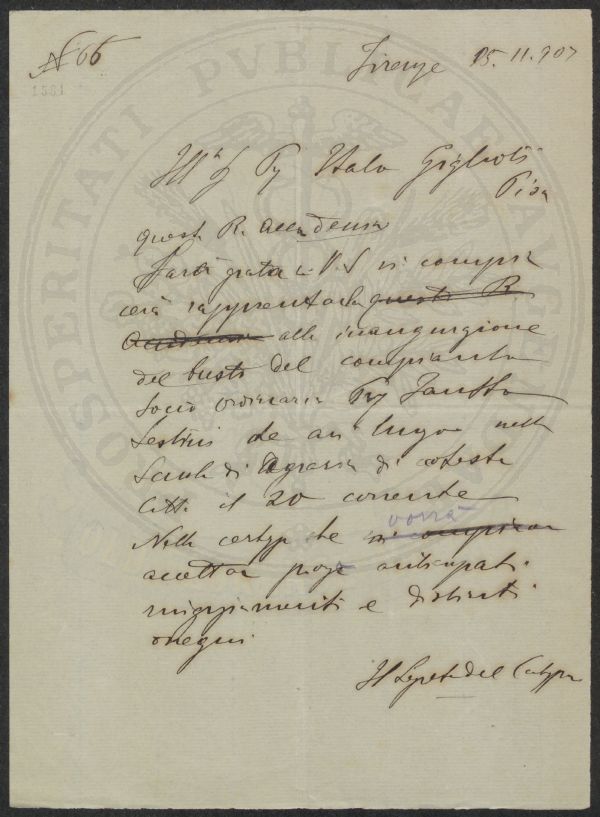 N 66
1561
Firenze 15. 11. 907
Ill. Sig Prof Italo Giglioli
Pisa
questa R. Accademia
Sarà grata a V. S. si compia
cerà rappresentarla questa R.
Accademia alla inaugurazione
del busto del compianto
Socio ordinario Prof
Sestini che avrà luogo nella
Scuola di Agraria di cotesta
Città il 20 corrente
Nella certezza che vorrà
accettare porge anticipati
ringraziamenti e distinti
ossequi
Il Segret. del
PROSPERITATI PVBLICAE AVGENDAE